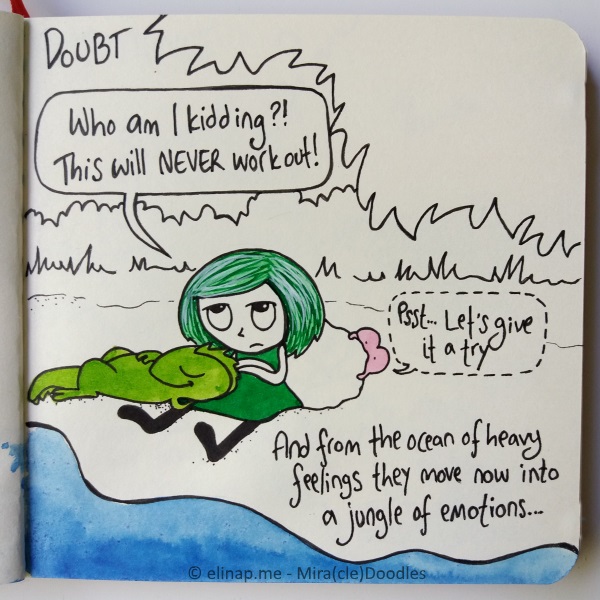 DOUBT
Who am I kidding?!
This will NEVER work out!
Psst... Let's give
it a try
And from the ocean of heavy
feelings they move now into
a jungle of emotions...
© elinap.me - Mira(cle)Doodles